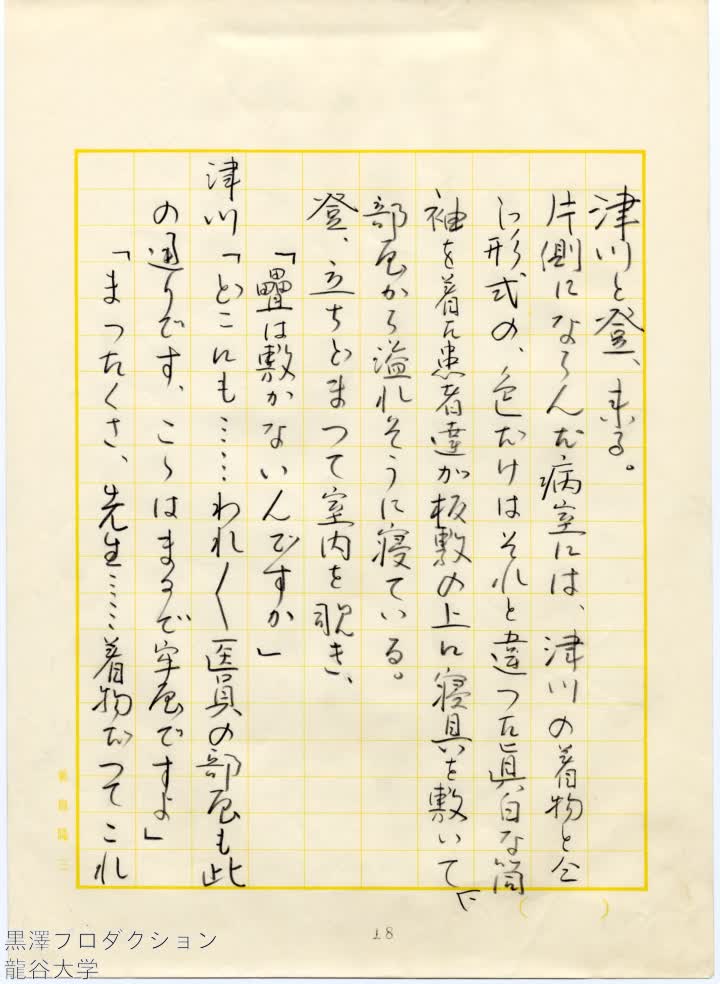 津川と登、来る。
片側にならんだ病室には、津川の着物と全
じ形式の、色だけはそれと違つた眞白な筒
袖を着た患者達が板敷の上に寝具を敷いて、
部屋から溢れそうに寝ている。
登、立ちどまつて室内を覗き、
「疊は敷かないんですか」
津川「どこにも……われ〱医員の部屋も此
の通りです、こゝはまるで牢屋ですよ」
「まつたくさ、先生……着物だつてこれ
18
黒澤プロダクション
龍谷大学